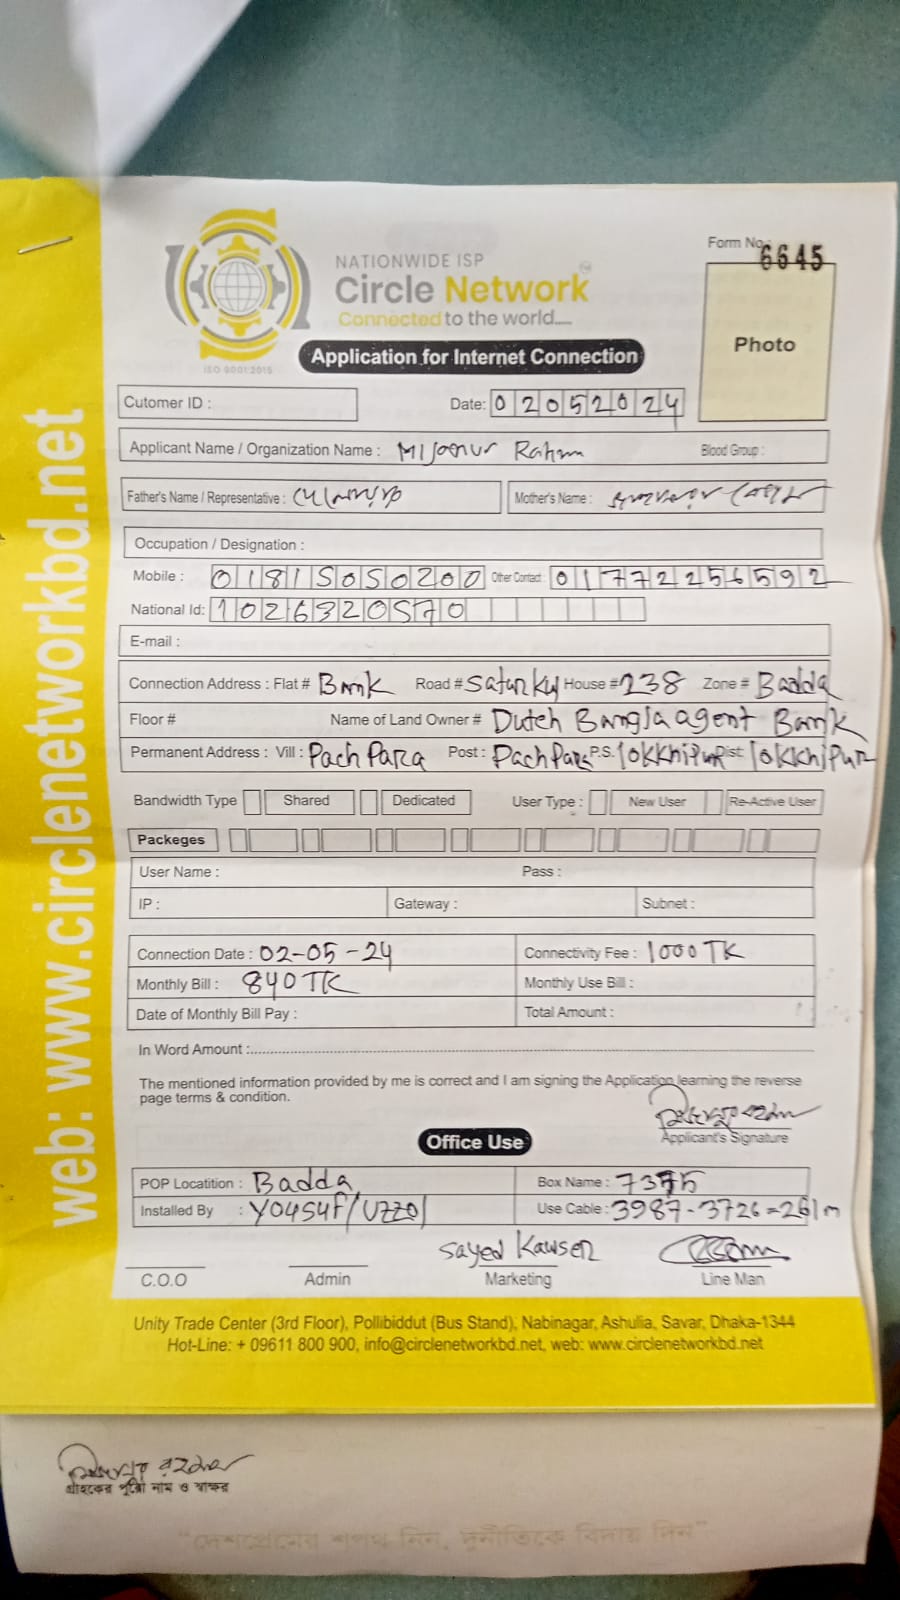 NATIONWIDE ISP
Circle Network
Connected to the world....
ISO 9001:2015
Form No: 6645
Photo
Application for Internet Connection
Cutomer ID :
Date: 02052024
Applicant Name / Organization Name : Mijanur Rahman Blood Group :
Father's Name / Representative :
Mother's Name :
Occupation / Designation :
Mobile : 01815050200 Other Contact : 01772256592
National Id: 1026320570
E-mail :
Connection Address : Flat # Bank Road # Satarkul House # 238 Zone # Badda
Floor # Name of Land Owner # Dutch Bangla agent Bank
Permanent Address : Vill : Pach Para Post : Pach Para P.S. lokkhipur Dist: lokkhipur
Bandwidth Type Shared Dedicated User Type : New User Re-Active User
Packeges
User Name : Pass :
IP : Gateway : Subnet :
Connection Date : 02-05-24 Connectivity Fee : 1000 TK
Monthly Bill : 840 TK Monthly Use Bill :
Date of Monthly Bill Pay : Total Amount :
In Word Amount :
The mentioned information provided by me is correct and I am signing the Application learning the reverse
page terms & condition.
Applicant's Signature
Office Use
POP Locatition : Badda Box Name : 7375
Installed By : Yousuf/Uzzol Use Cable : 3987-3726=261m
Sayed Kawser
C.O.O Admin Marketing Line Man
Unity Trade Center (3rd Floor), Pollibiddut (Bus Stand), Nabinagar, Ashulia, Savar, Dhaka-1344
Hot-Line: + 09611 800 900, info@circlenetworkbd.net, web: www.circlenetworkbd.net
web: www.circlenetworkbd.net
মিজানুর রহমান
গ্রাহকের পুরো নাম ও স্বাক্ষর
"দেশপ্রেমের শপথ নিন, দুর্নীতিকে বিদায় দিন"